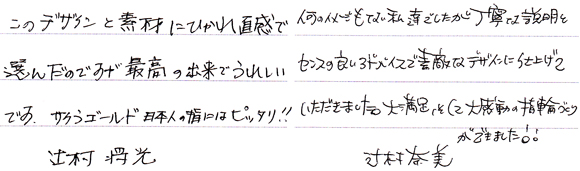 このデザインと素材にひかれ直感で
選んだのですが最高の出来でうれしい
です。サクラゴールド日本人の指にはピッタリ!!
辻村将光
何のイメージもてない私達でしたが丁寧な説明と
センスの良いアドバイスで素敵なデザインに仕上げて
いただきました。大満足、そして大感動の指輪づくり
ができました!!
辻村奈美